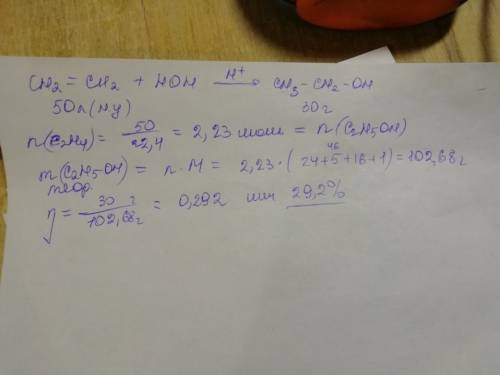 CH₂ = CH₂ + HOH —H⁺→ CH₃ – CH₂ – OH
50л (ну) 30г
n(C₂H₄) = 50/22,4 = 2,23 моль = n(C₂H₅OH)
m(C₂H₅OH) = n·M = 2,23·(24+5+16+1) = 102,68г
теор. 46
η = 30 г/102,68г = 0,292 или 29,2%